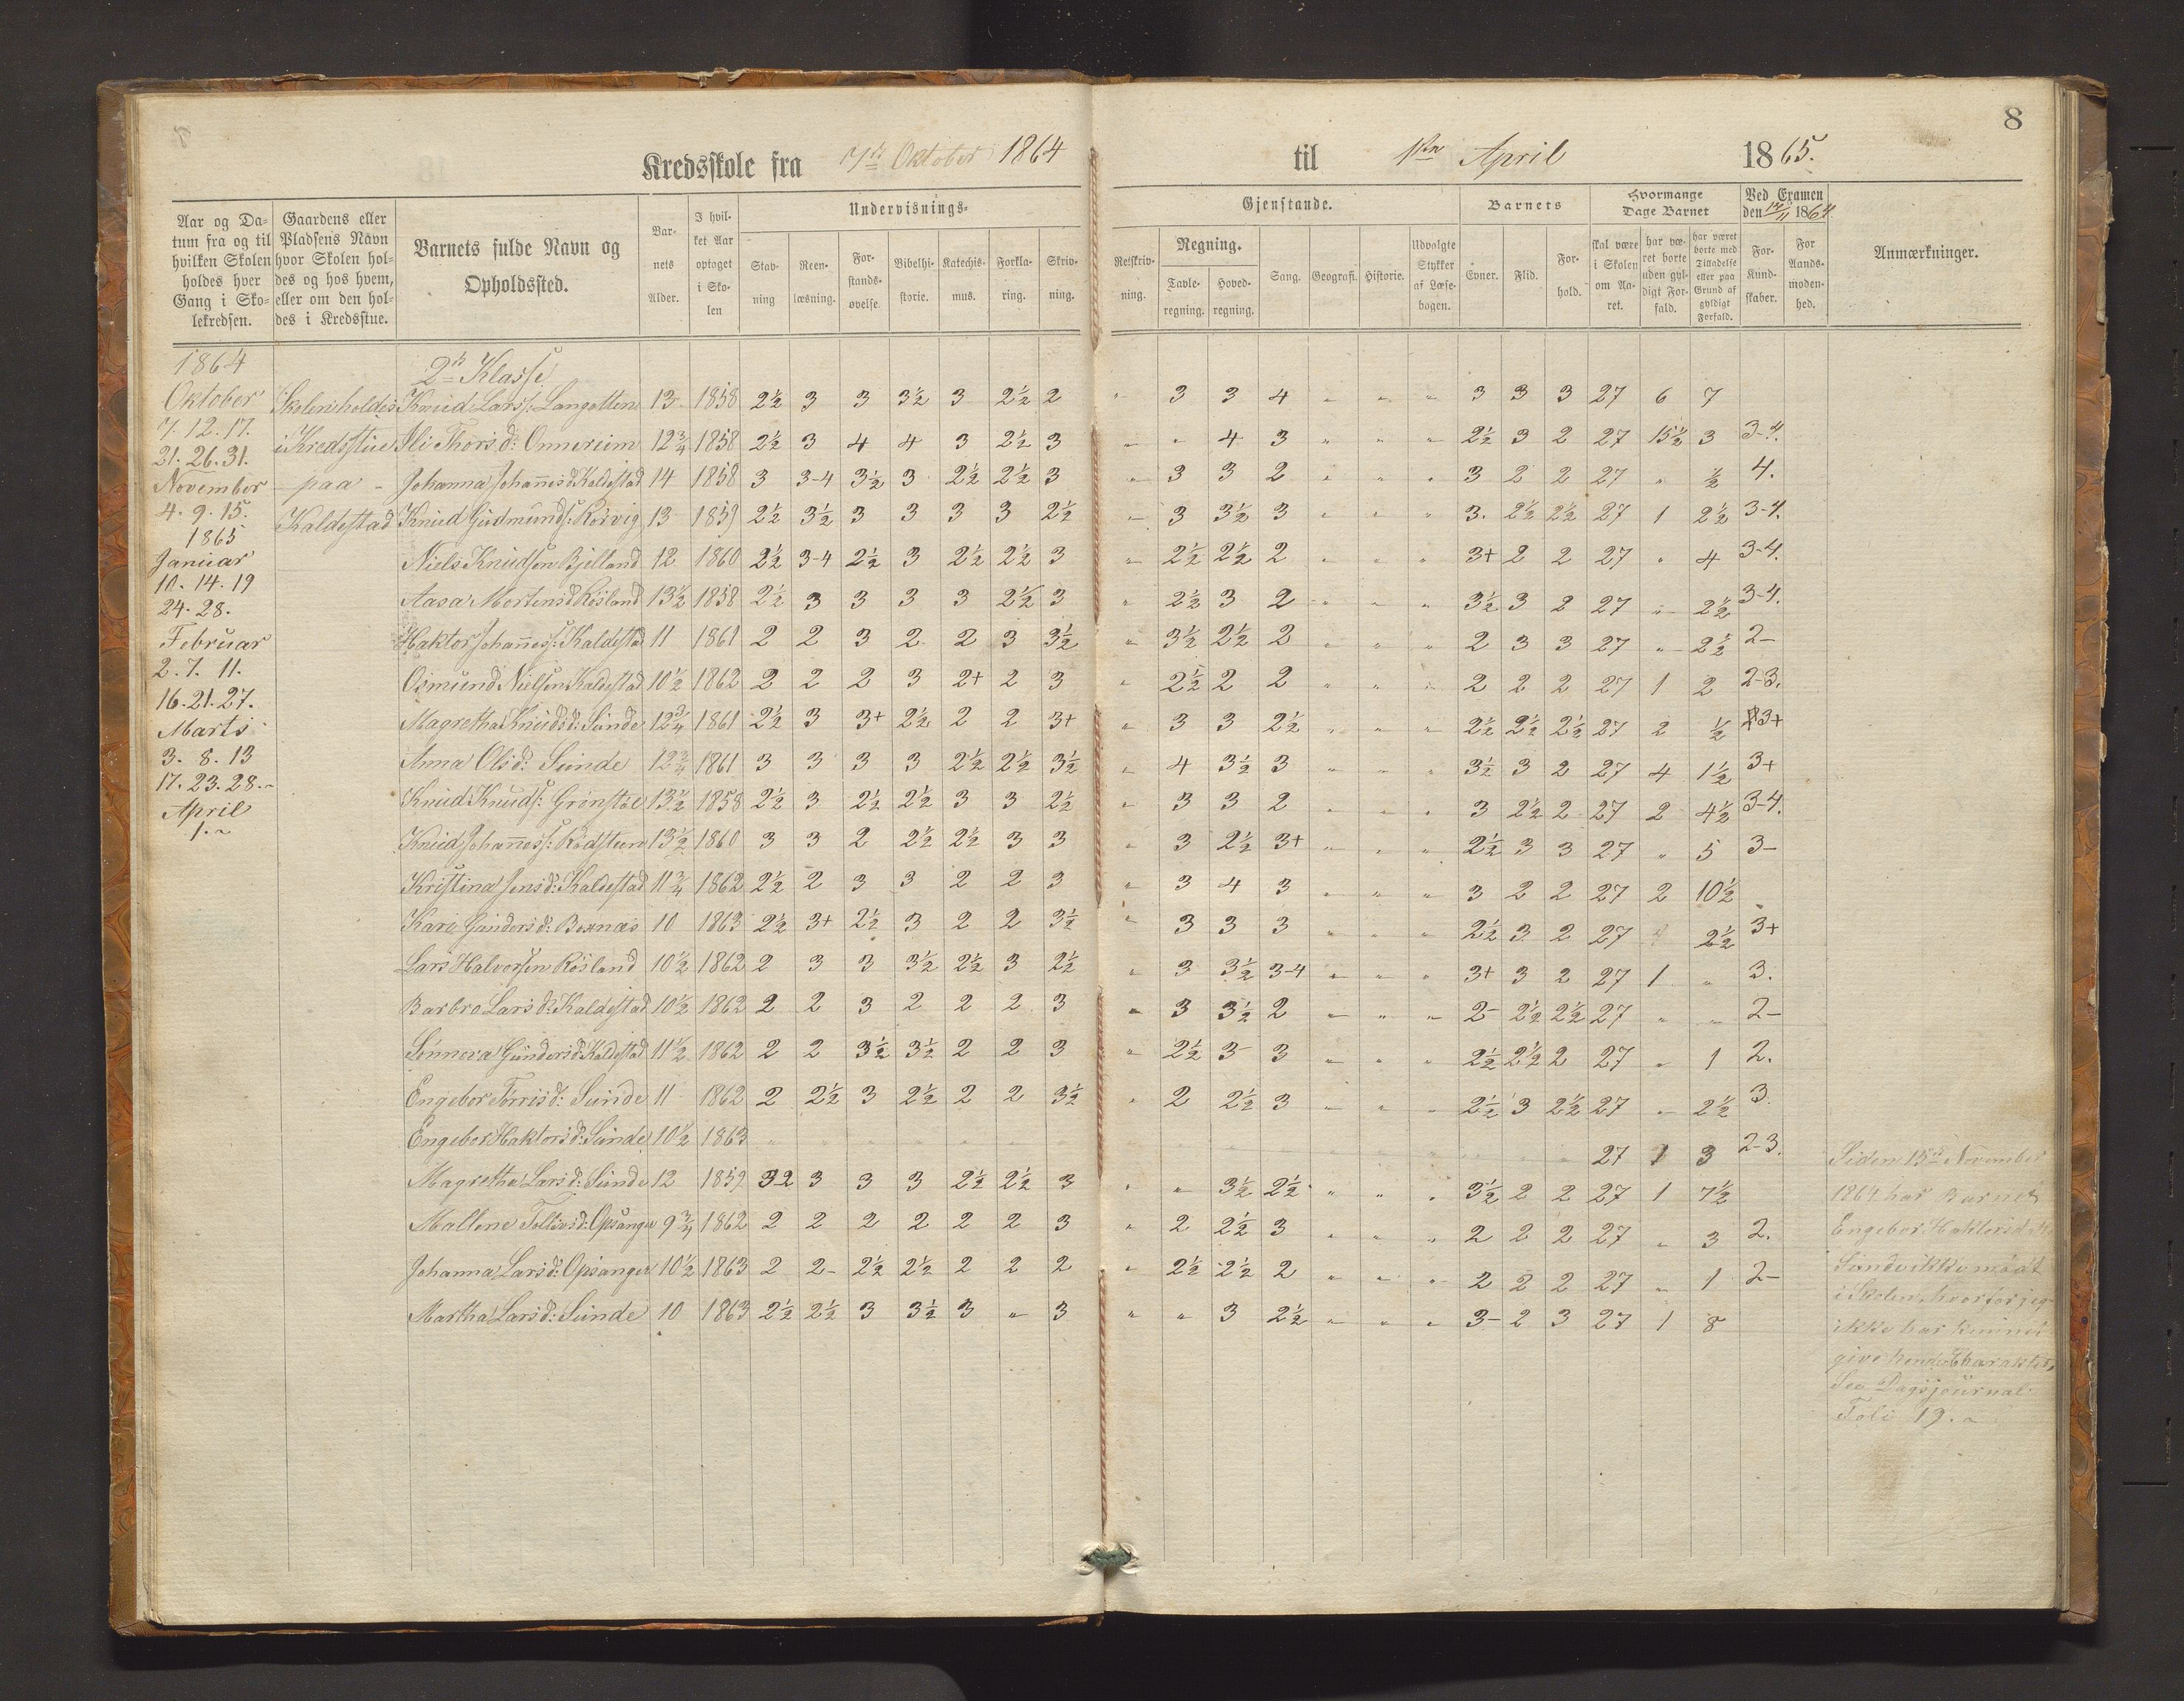 8
Kredsskole fra 7de Oktober 1864 til 1ste April 1865.
Aar og Da-
tum fra og til
hvilken Skolen
holdes hver
Gang i Sko-
lekredsen.
Gaardens eller
Pladsens Navn
hvor Skolen hol-
des og hos hvem,
eller om den hol-
des i Kredsstue.
Barnets fulde Navn og
Opholdssted.
Bar-
nets
Alder.
I hvil-
ket Aar
optaget
i Sko-
len
Undervisnings-
Stav-
ning
Reen-
læsning.
For-
stands-
øvelse.
Bibelhi-
storie.
Katechis-
mus.
Forkla-
ring.
Skriv-
ning.
Gjenstande.
Retskriv-
ning.
Regning.
Tavle-
regning.
Hoved-
regning.
Sang.
Geografi.
Historie.
Udvalgte
Stykker
af Læse-
bogen.
Barnets
Evner.
Flid.
For-
hold.
Hvormange
Dage Barnet
skal være
i Skolen
om Aa-
ret.
har væ-
ret borte
uden gyl-
digt For-
fald.
har været
borte med
Tilladelse
eller paa
Grund af
gyldigt
Forfald.
Ved Examen
den 1864.
For-
Kund-
skaber.
For
Aands-
moden-
hed.
Anmærkninger.
1864
Oktober
7. 12. 17.
21. 26. 31.
November
4. 9. 15.
1865
Januar
10. 14. 19
24. 28.
Februar
2. 7. 11.
16. 21. 27.
Marts
3. 8. 13
17. 23. 28.
April
1.
Skolen holdes
i Kredsstue
- paa -
Kaldestad
2de Klasse
Knud Larss: Langotten 13 1858 2½ 3 3 3½ 3 2½ 2 " 3 3 4 " " " 3 3 3 27 6 7
Thorsd: Onnereim 12¾ 1858 2½ 3 4 4 3 2½ 3 " " 4 3 " " " 2½ 3 2 27 15½ 3 3-4.
Johanna Johannesd Kaldestad 14 1858 3 3-4 3½ 3 2½ 2½ 3 " 3 3 2 " " " 3 2 2 27 " ½ 4.
Knud Gudmunds: Rørvig 13 1859 2½ 3½ 3 3 3 3 2½ " 3 3½ 3 " " " 3. 2½ 2½ 27 1 2½ 3-4.
Niels Knudsen Bjelland 12 1860 2½ 3-4 2½ 3 2½ 2½ 3 " 2½ 2½ 2 " " " 3+ 2 2 27 " 4 3-4.
Aasa Mortensd Røsland 13½ 1858 2½ 3 3 3 3 2½ 3 " 2½ 3 2 " " " 3½ 3 2 27 " 2½ 3-4.
Haktor Johanness: Kaldestad 11 1861 2 2 3 2 2 3 3½ " 3½ 2½ 2 " " " 2 3 3 27 " 2½ 2-
Osmund Nielsen Kaldestad 10½ 1862 2 2 2 3 2+ 2 3 " 2½ 2 2 " " " 2 2 2 27 1 2 2-3.
Magretha Knudsd: Sunde 12¾ 1861 2½ 3 3+ 2½ 2 2 3+ " 3 3 2½ " " " 2½ 2½ 2½ 27 2 ½ 3+
Anna Olsd: Sunde 12¾ 1861 3 3 3 3 2½ 2½ 3½ " 4 3½ 3 " " " 3½ 3 2 27 4 1½ 3+
Knud Knuds: Grønstøl 13½ 1858 2½ 3 2½ 2½ 3 3 2½ " 3 3 2 " " " 3 2½ 2 27 2 4½ 3-4.
Knud Johanness: Rødsteen 13½ 1860 3 3 2 2½ 2½ 3 3 " 3 2½ 3+ " " " 2½ 3 3 27 " 5 3-
Kristina Jensd: Kaldestad 11¾ 1862 2½ 2 3 3 2 2 3 " 3 4 3 " " " 3 2 2 27 2 10½
Kari Gundersd: Boxnæs 10 1863 2½ 3+ 2½ 3 2 2 3½ " 3 3 3 " " " 2½ 3 2 27 2½ 3+
Lars Halvorsen Røsland 10½ 1862 2 3 3 3½ 2½ 3 2½ " 3 3½ 3-4 " " " 3+ 3 2 27 1 " 3.
Barbro Larsd: Kaldestad 10½ 1862 2 2 3 2 2 2 3 " 3 3½ 2 " " " 2- 2½ 2½ 27 " " 2-
Sønneva Gundersd: Kaldestad 11½ 1862 2 2 3½ 3½ 2 2 3 " 2½ 3- 3 " " " 2½ 2½ 2 27 " 1 2.
Engebor Torrisd: Sunde 11 1862 2 2½ 3 2½ 2 2 3½ " 2 2½ 3 " " " 2½ 3 2½ 27 " 2½ 3.
Engebor Haktorsd: Sunde 10½ 1863 " " " " " " " " " " " " " " " " " 27 1 3 2-3.
Magretha Larsd: Sunde 12 1859 32 3 3 3 2½ 2½ 3 " " 3½ 2½ " " " 3½ 2 2 27 1 7½
Mallene Tollevsd: Opsanger 9¾ 1862 2 2 2 2 2 2 3 " 2 2½ 3 " " " 2 2 2 27 " 3 2.
Johanna Larsd: Opsanger 10½ 1863 2 2- 2½ 2½ 2 2 2 " 2½ 2½ 2 " " " 2 2 2 27 " 1 2-
Martha Larsd: Sunde 10 1863 2½ 2½ 3 3½ 3 " 3 " " 3 2½ " " " 3- 2 3 27 1 8
Siden 15de November
1864 har Barnet
Engebor Haktorsd
Sunde ikke mødt
i Skolen, hvorfor jeg
ikke har kunnet
give hende Charakter,
See Dagsjournal
Foli 19.